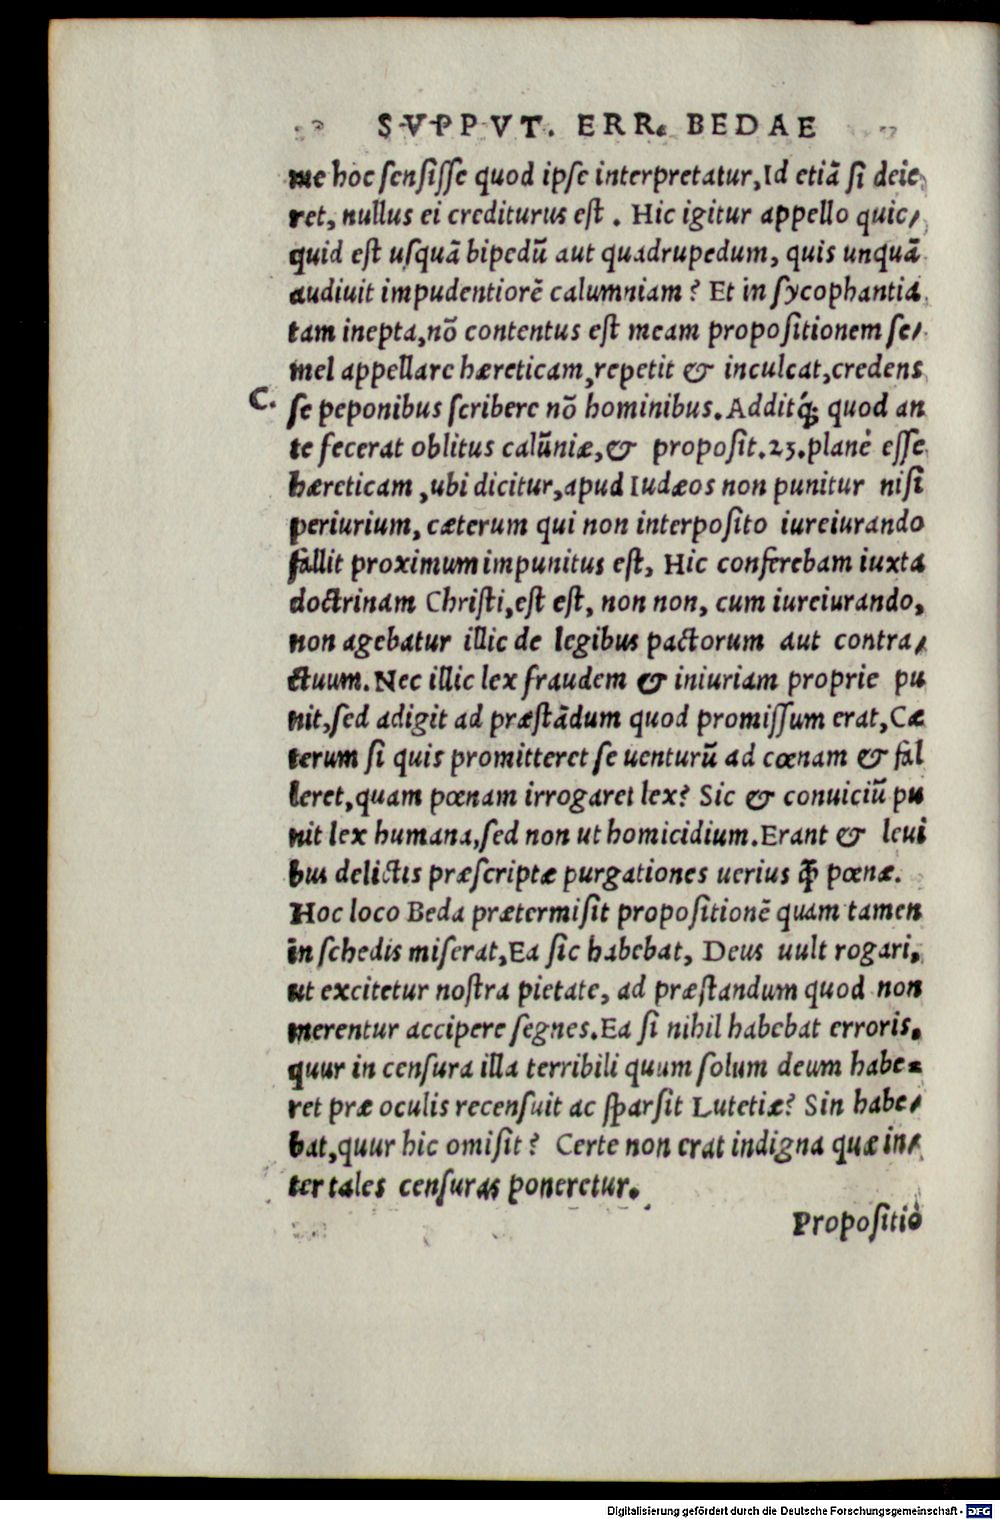 SVPPVT. ERR. BEDAE
me hoc sensisse quod ipse interpretatur, Id etiā si deie
ret, nullus ei crediturus est. Hic igitur appello quic/
quid est usquā bipedū aut quadrupedum, quis unquā
audiuit impudentiorē calumniam? Et in sycophantia
tam inepta, nō contentus est meam propositionem se/
mel appellare hæreticam, repetit & inculcat, credens
C. se peponibus scribere nō hominibus. Additq́; quod an
te fecerat oblitus calūniæ, & proposit. 23. planè esse
hæreticam, ubi dicitur, apud Iudæos non punitur nisi
periurium, cæterum qui non interposito iureiurando
fallit proximum impunitus est, Hic conferebam iuxta
doctrinam Christi, est est, non non, cum iureiurando,
non agebatur illic de legibus pactorum aut contra/
ctuum. Nec illic lex fraudem & iniuriam proprie pu
nit, sed adigit ad præstādum quod promissum erat, Cæ
terum si quis promitteret se uenturū ad cœnam & fal
leret, quam pœnam irrogaret lex? Sic & conuiciū pu
nit lex humana, sed non ut homicidium. Erant & leui
bus delictis præscriptæ purgationes uerius q̄ pœnæ.
Hoc loco Beda prætermisit propositionē quam tamen
in schedis miserat, Ea sic habebat, Deus uult rogari,
ut excitetur nostra pietate, ad præstandum quod non
merentur accipere segnes. Ea si nihil habebat erroris,
quur in censura illa terribili quum solum deum habe=
ret præ oculis recensuit ac sparsit Lutetiæ? Sin habe/
bat, quur hic omisit? Certe non erat indigna quæ in/
ter tales censuras poneretur.
Propositio
Digitalisierung gefördert durch die Deutsche Forschungsgemeinschaft - DFG